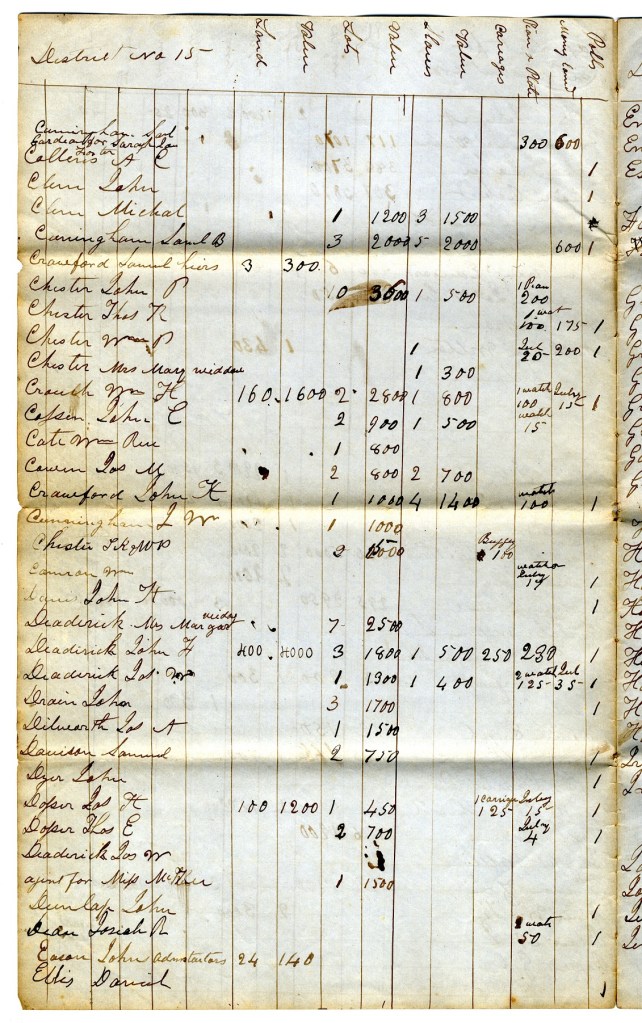 District No 15 Land Value Lots Value Slaves Value Carages Pian & Watc Money Loand Polls
Cunningham Saml
Gardean for Sarah Ja 300 600
Foster
Colleris A C 1
Clem John 1
Clem Michal 1 1200 3 1500
Cunningham Saml B 3 2000 5 2000 600 1
Crawford Samuel hiers 3 300
Chester John P 10 3600 1 500 1 Pian 200
Chester Thos K 1 wat 100 175 1
Chester Wm P 1 Jul 20 200 1
Chester Mrs Mary widdow 1 300
Crouch Wm H 160 1600 2 2800 1 800 1 watch 100 Julry 15 1
Cossen John C 2 900 1 500 watch 15
Cate Wm Rev 1 800
Cowen Jas M 2 800 2 700
Crawford John K 1 1000 4 1400 watch 100 1
Cunningham J W 1 1000
Chester J K & W P 2 Buggy 100
Camron Wm watch Julry 1
John H 1
Deaderick Mrs Margart widow 7 2500
Deaderick John F 400 4000 3 1800 1 500 250 230 1
Deaderick Jas W 1 1300 1 400 2 watch 125 Jul 35 1
Drain John 3 1700 1
Dilworth Jos A 1 1500
Davison Samuel 2 750
Dyer John 1
Dosser Jas H 100 1200 1 450 1 carrige 125 Julry 15 1
Dosser Thos E 2 700 Julry 4 1
Deaderick Jos W
agent for Miss 1 1500
Dunlap John 1
Dean Josiah R 2 watc 50 1
Eason John admstators 24 140
Ellis Daniel 1